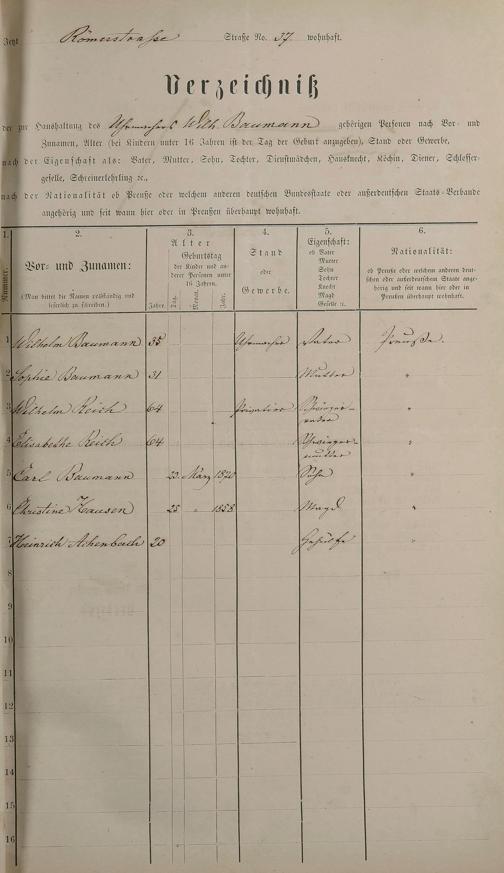 Jetzt Römerstrasse Straße No. 37 wohnhaft.
Verzeichniß
der zur Haushaltung des Uhrmachers Wilh. Baumann gehörigen Personen nach Vor- und
Zunamen, Alter (bei Kindern unter 16 Jahren ist der Tag der Geburt anzugeben), Stand oder Gewerbe,
nach der Eigenschaft als: Vater, Mutter, Sohn, Tochter, Dienstmädchen, Hausknecht, Köchin, Diener, Schlosser-
geselle, Schreinerlehrling ꝛc.,
nach der Nationalität ob Preuße oder welchem anderen deutschen Bundesstaate oder außerdeutschen Staats-Verbande
angehörig und seit wann hier oder in Preußen überhaupt wohnhaft.
1. 2. 3. 4. 5. 6.
Nummer.
Vor- und Zunamen:
(Man bittet die Namen vollständig und
leserlich zu schreiben.)
Alter
Geburtstag
der Kinder und an-
derer Personen unter
16 Jahren.
Jahre. Tag. Monat. Jahr.
Stand
oder
Gewerbe.
Eigenschaft:
ob Vater
Mutter
Sohn
Tochter
Knecht
Magd
Geselle ꝛc.
Nationalität:
ob Preuße oder welchem anderen deut-
schen oder außerdeutschen Staate ange-
hörig und seit wann hier oder in
Preußen überhaupt wohnhaft.
1 Wilhelm Baumann 35 Uhrmacher Vater Preuße.
2 Sophie Baumann 31 Mutter "
3 Wilhelm Reich 64 Privatier Schwieger-
vater "
4 Elisabethe Reich 64 Schwieger-
mutter "
5 Carl Baumann 23. März 1870 Sohn "
6 Christine Hausen 25 " 1858 Magd "
7 Heinrich Achenbach 20 Gehülfe "
8
9
10
11
12
13
14
15
16